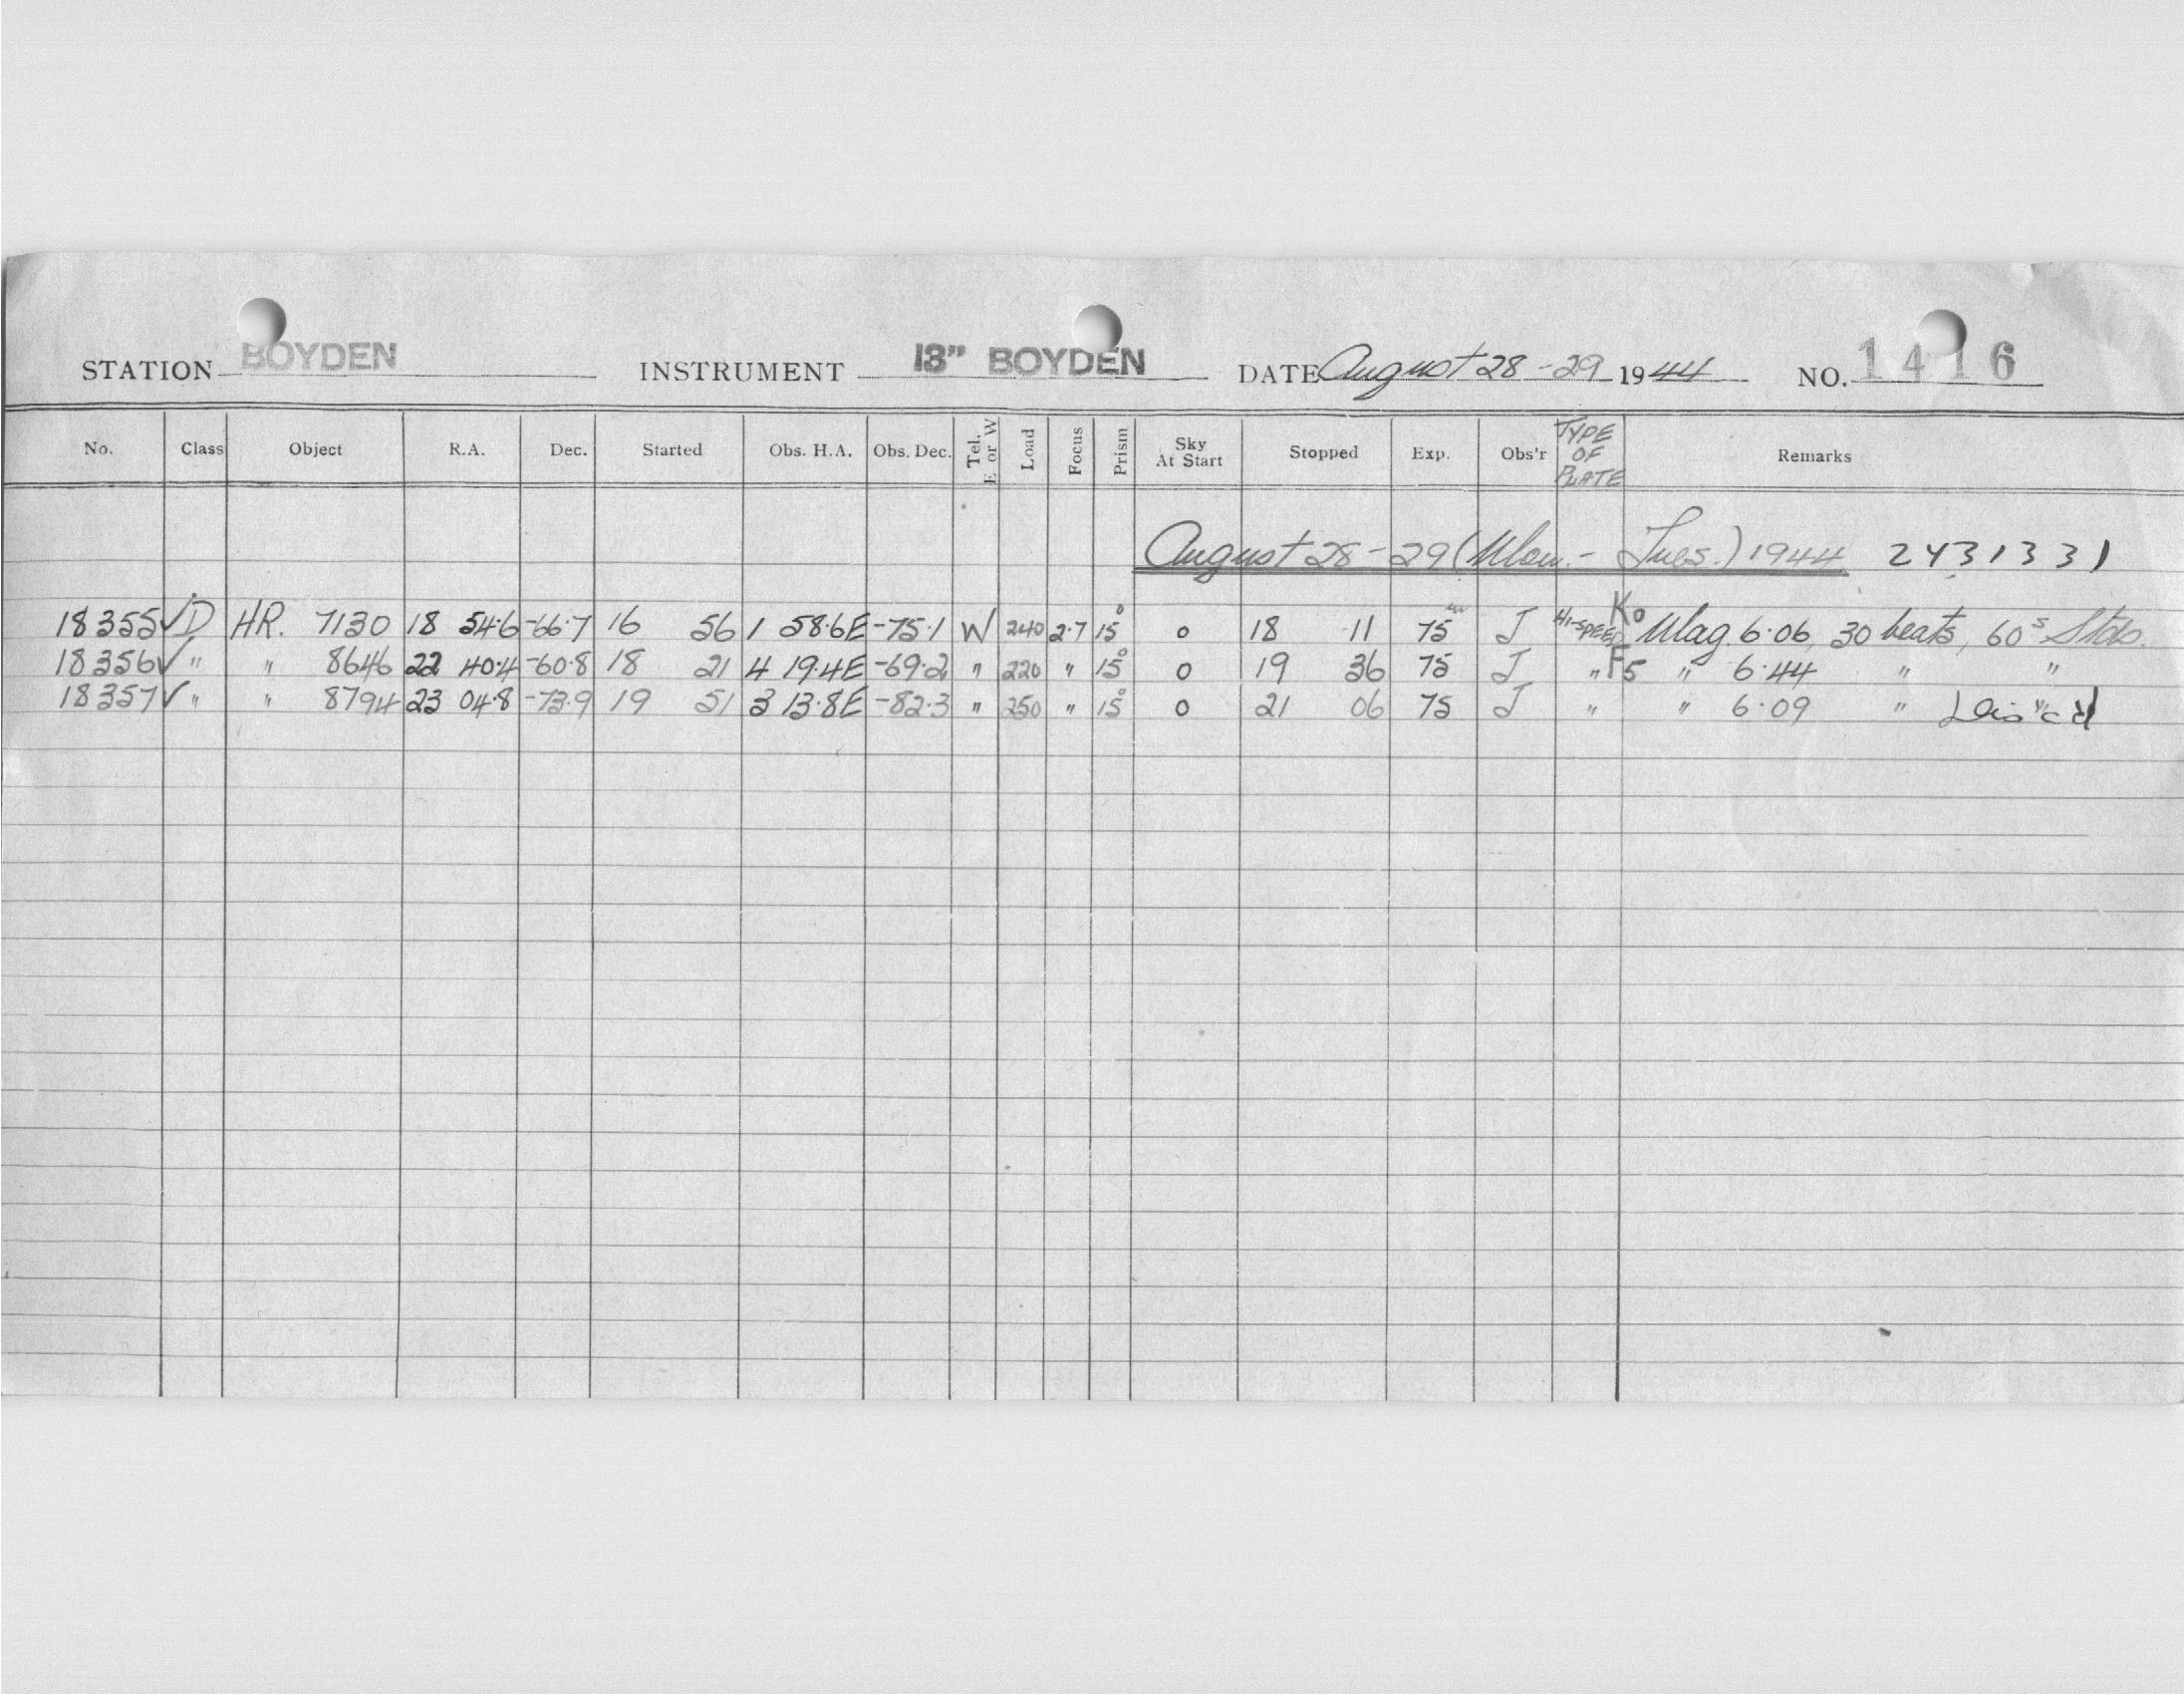 STATION BOYDEN INSTRUMENT 13" BOYDEN DATE August 28-29 1944 NO. 1416
No. Class Object R.A. Dec. Started Obs. H.A. Obs. Dec. Tel. E or W Load Focus Prism Sky At Start Stopped Exp. Obs'r TYPE OF PLATE Remarks
August 28-29 (Mon.- Tues.) 1944 2431331
18355 ✓ D HR. 7130 18 54.6 -66.7 16 56 1 58.6E -75.1 W 240 2.7 15° 0 18 11 75 J HI-SPEED K0 Mag. 6.06, 30 beats, 60s Stds.
18356 ✓ " " 8646 22 40.4 -60.8 18 21 4 19.4E -69.2 " 220 " 15° 0 19 36 75 J " F5 " 6.44 " "
18357 ✓ " " 8794 23 04.8 -73.9 19 51 3 13.8E -82.3 " 250 " 15° 0 21 06 75 J " " 6.09 " "